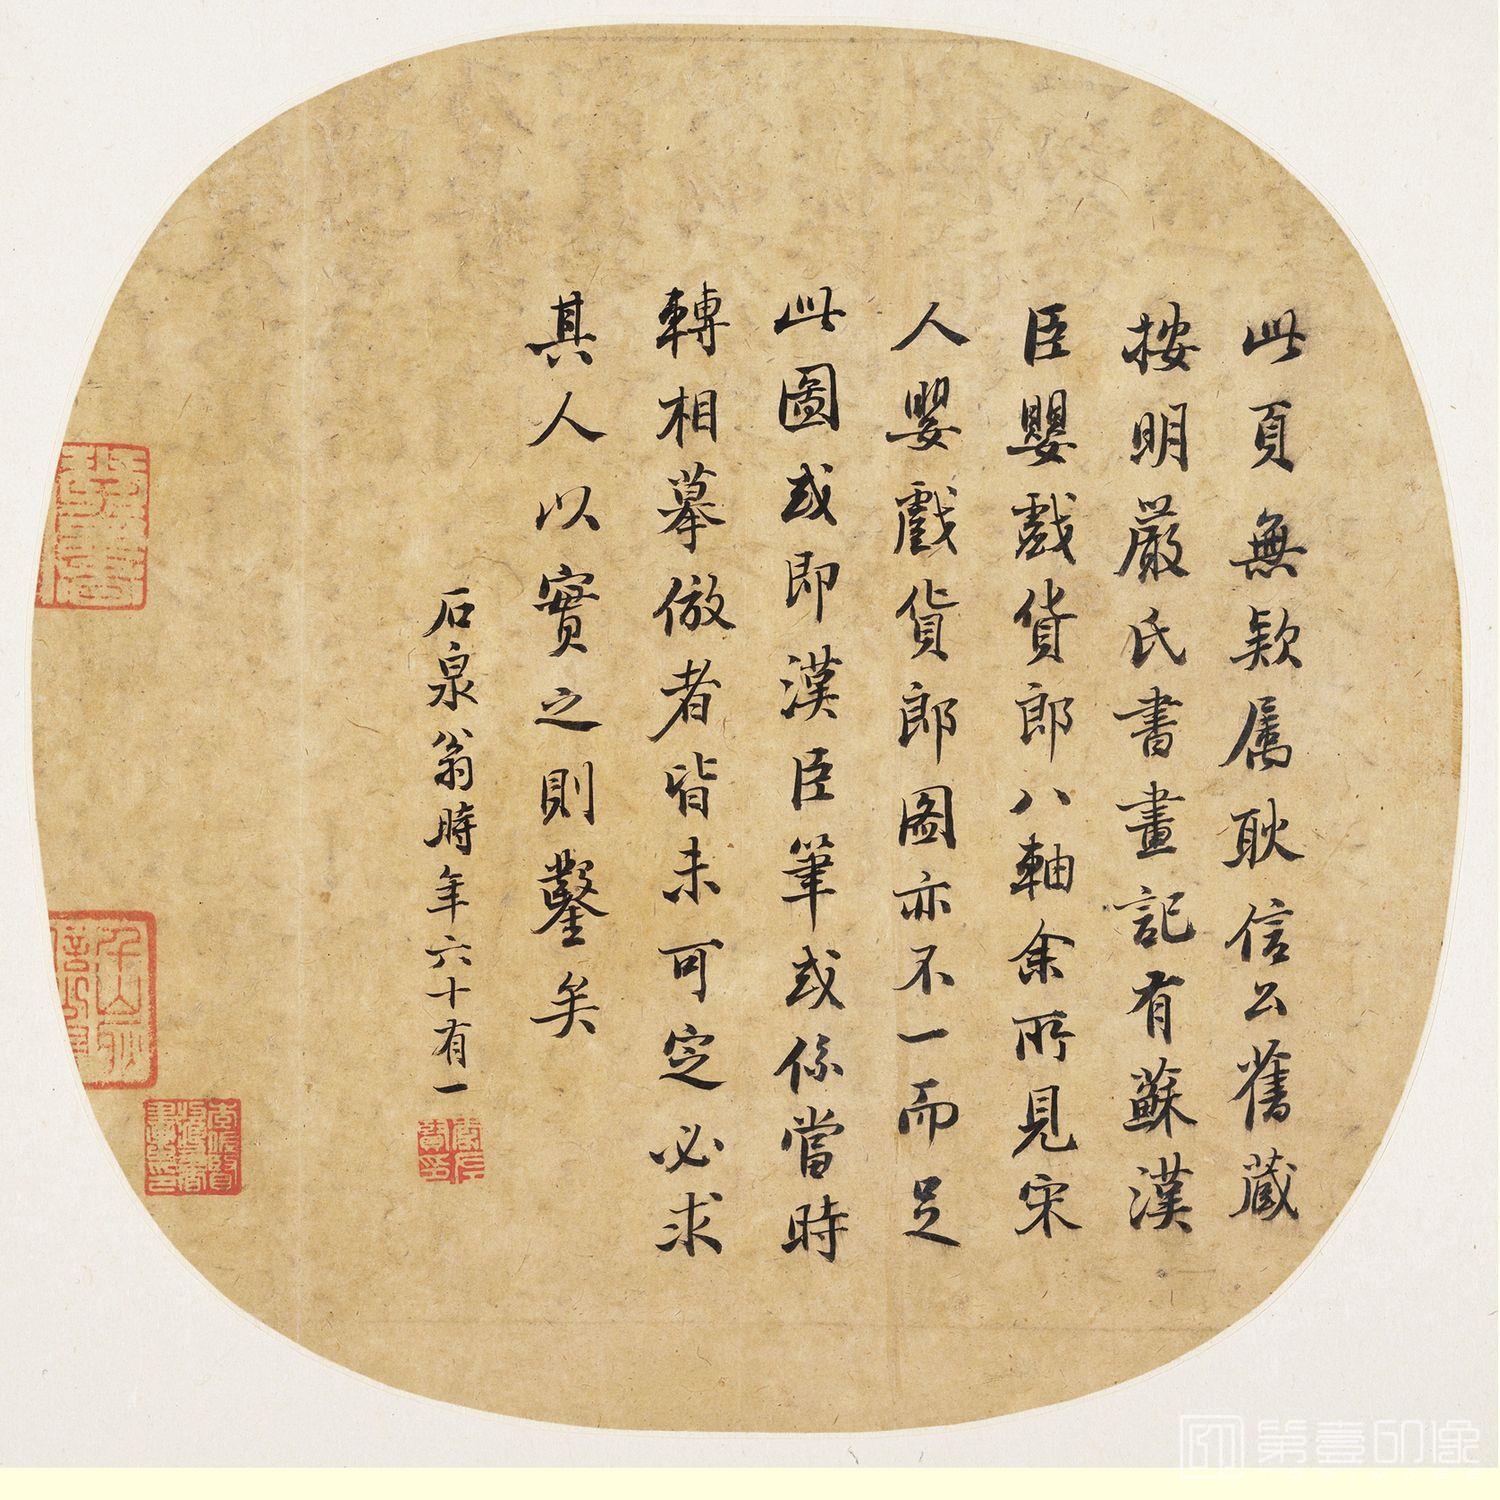 此頁無欵属耿信公舊蔵
按明嚴氏書畫記有蘇漢
臣嬰戲貨郎八軸余所見宋
人嬰戲貨郎圖亦不一而足
此圖或即漢臣筆或係當時
轉相摹倣者皆未可定必求
其人以實之則鑿矣
石泉翁時年六十有一
第壹印像